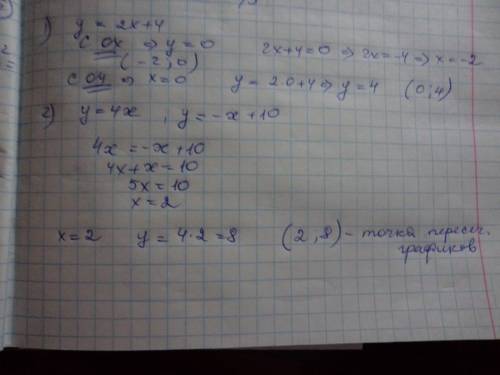 1) y = 2x+4
с OX ⇒ y = 0 2x+4=0 ⇒ 2x=-4 ⇒ x=-2
(-2;0)
с OY ⇒ x=0 y = 2·0+4 ⇒ y=4 (0;4)
2) y=4x , y=-x+10
4x=-x+10
4x+x=10
5x=10
x=2
x=2 y = 4·2=8 (2,8) - точка пересеч.
графиков